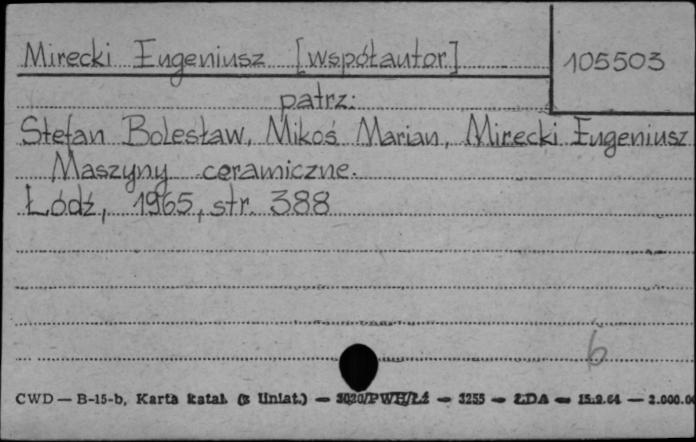 Mirecki Eugeniusz [współautor]
105503
patrz:
Stefan Bolesław, Mikoś Marian, Mirecki Eugeniusz
Maszyny ceramiczne.
Łódź, 1965, str. 388
6
CWD — B-15-b, Karta katal. (z liniat.) — 3020/PWH/Łź — 3255 — ŁDA — 15.9.64 — 2.000.00